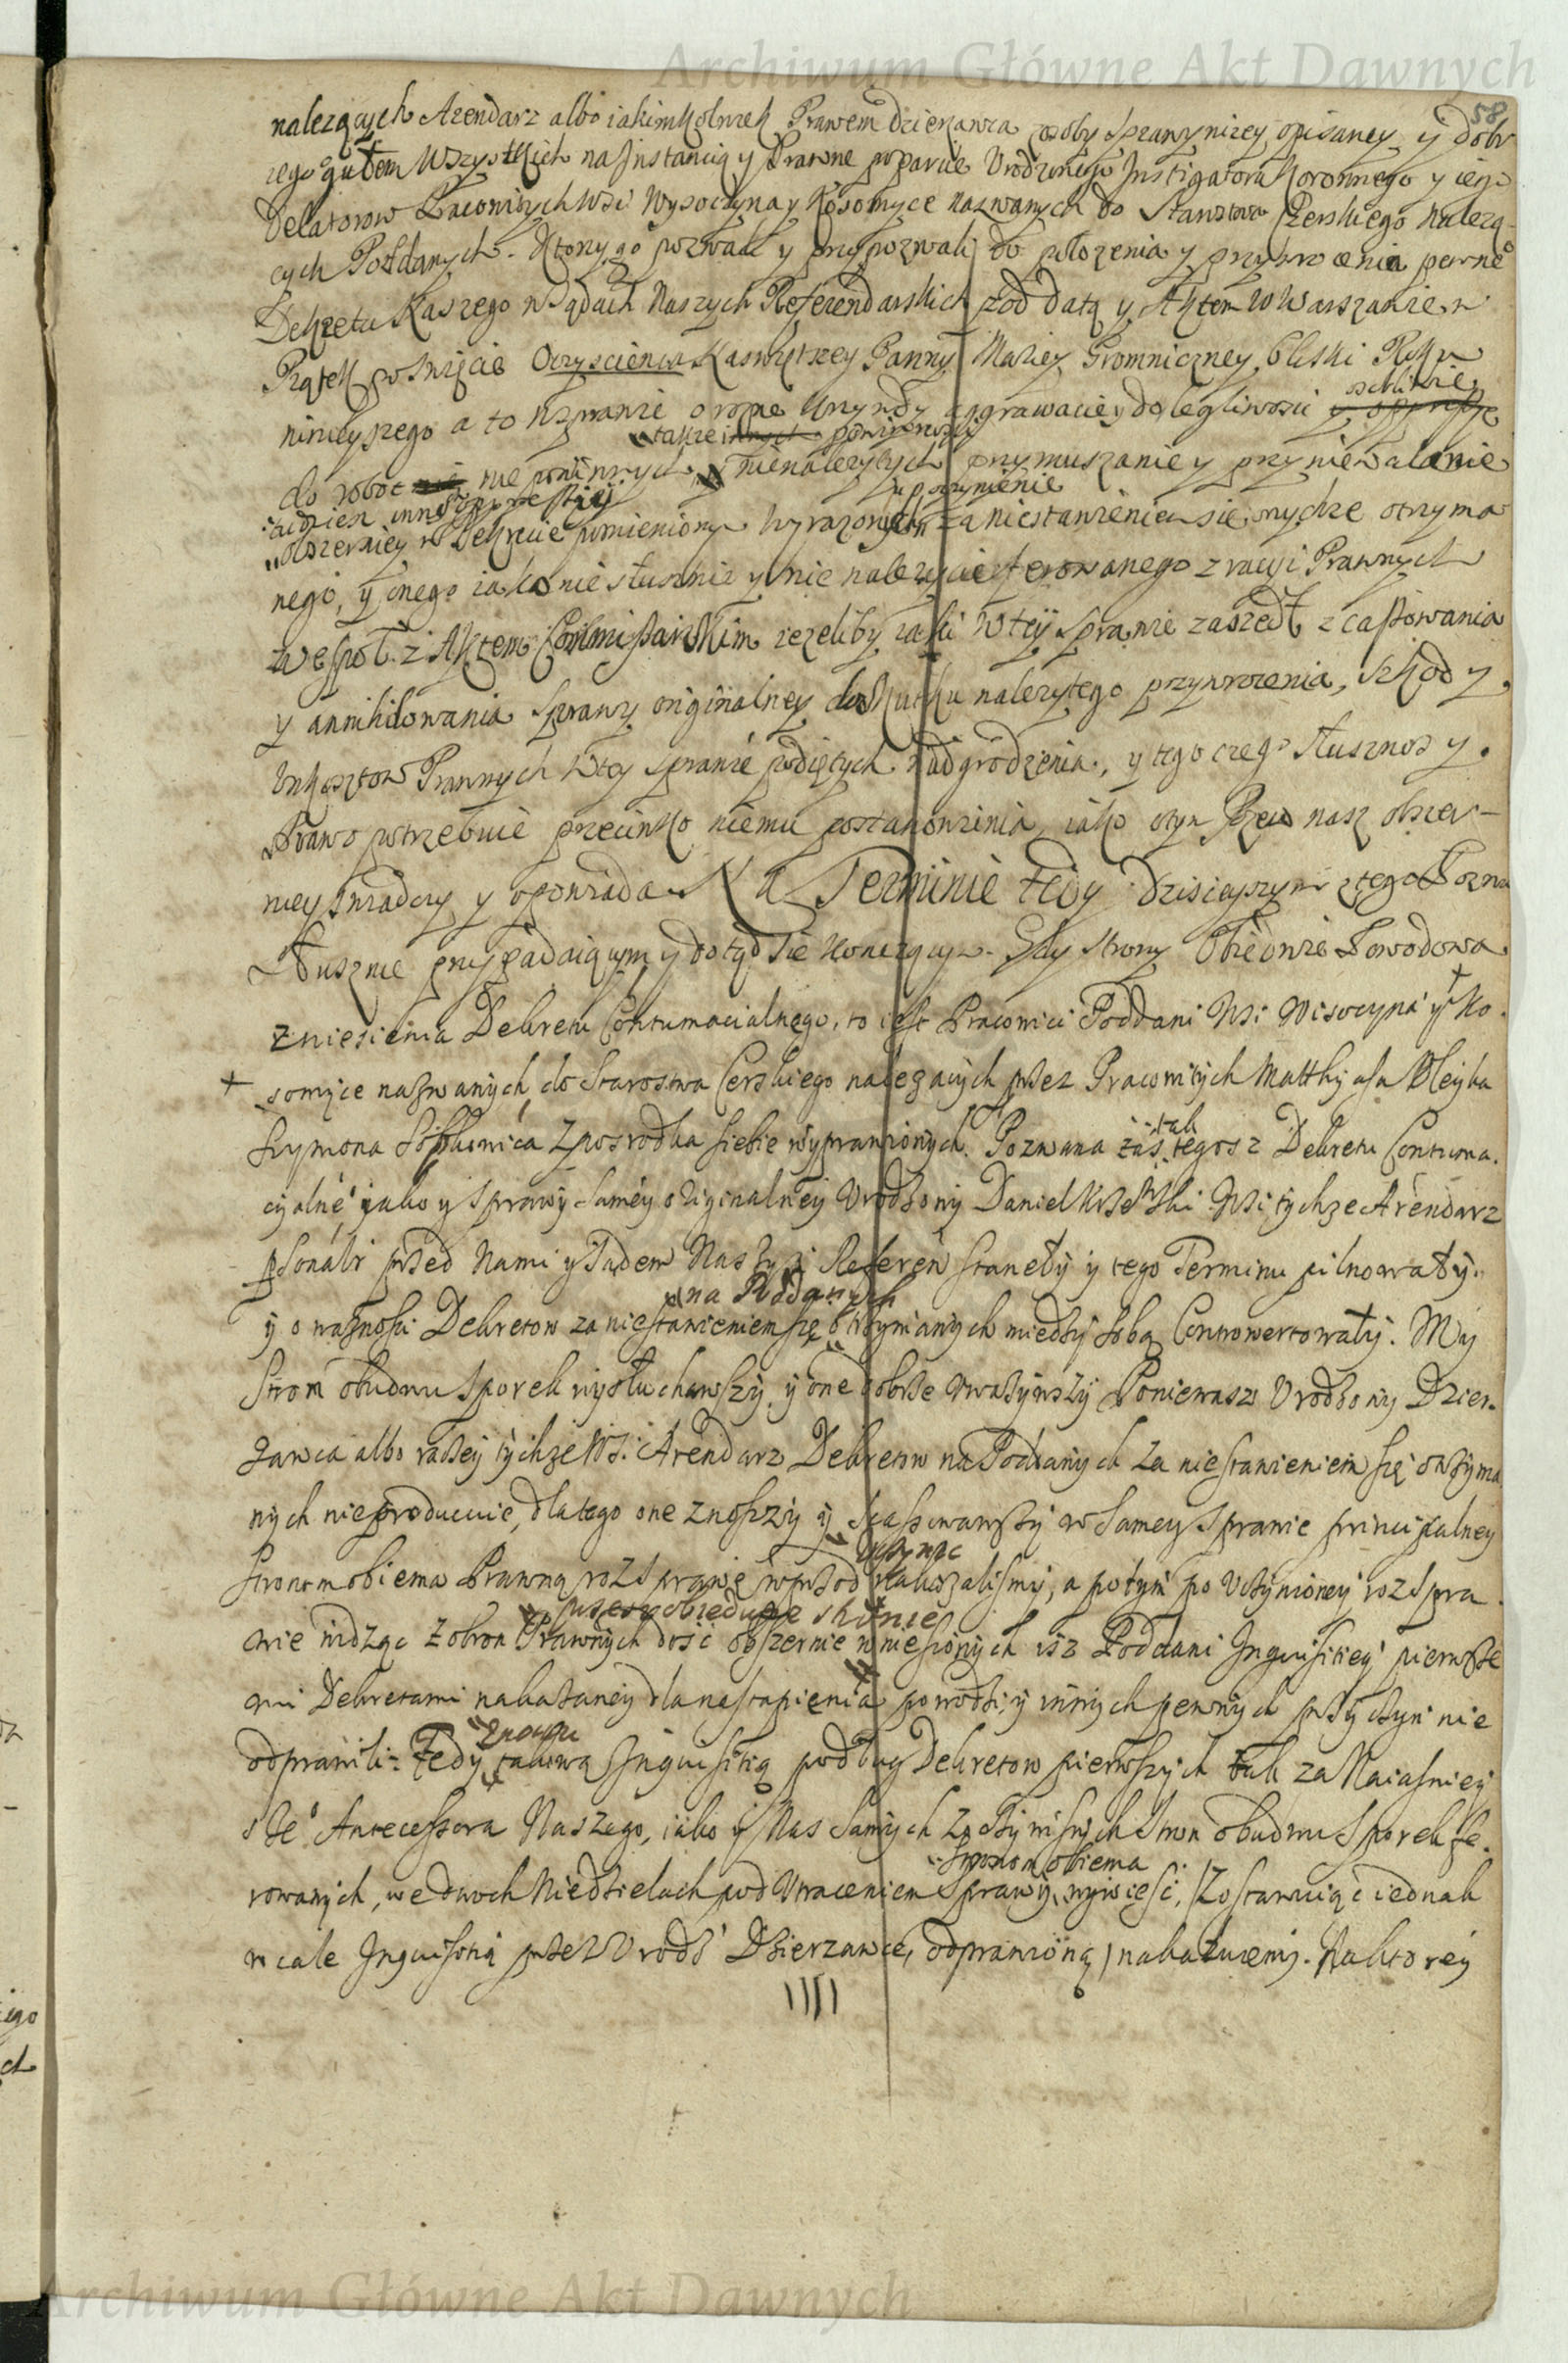 Archiwum Główne Akt Dawnych
58
nalezących Arendarz albo iakimkolwiek Prawem dzierzawca osoby sprawy nizey opisaney y dobr
iego gułem wszystkich na Instantią y Prawne poparcie Urodzonego Instigatora Koronnego y iego
Delatorow Pracowitych wsi Wysoczyna y Kosomyce nazwanych do Starostwa Czerskiego nalezą-
cych Poddanych. Ktorzy go pozwali y przypozwali do płozenia y przywrocenia pewne⁰
Dekretu Naszego w Sądach Naszych Referendarskich pod datą y Aktem w Warszawie w
Piątek po Święcie Oczyscienia Naswiętszey Panny Mariey Gromniczney bliski Roku
ninieyszego a to względem o rozne krzywdy aggrawacie y dolegliwosci y oppressye
osobliwie
także innych powinnosci
do robot nie powinnych y nienalezytych przymuszanie y przyniewalanie
zadzien inne
uczynienie
obszerniey w Dekrecie pomieniony wyrazonych za niestawieniem się onychze otrzyma
nego, y onego iako niesłusznie y nie nalezycie ferowanego z racyi Prawnych
wespoł z Aktem Commissarskim iezeliby iaki w tey sprawie zaszedł z cassowania
y annihilowania sprawy originalney do skutku nalezytego przywrocenia, szkod y
Unkosztow Prawnych w tey sprawie podiętych nadgrodzenia, y tego czego słusznosc y
Prawo potrzebuie przeciwko niemu postanowienia, iako otym Pozew nasz obszer-
niey swiadczy y opowiada. Na Terminie tedy dzisieyszym z tego Pozwu
Słusznie przypadaiącym y dotąd sie konczącym. Gdy strony Obiedwie Powodowa
zniesienia Dekretu Contumacialnego, to iest Pracowici Poddani Wsi Wisoczyna y + Ko
+ somyce nazwanych do Starostwa Cerskiego nalezących przez Pracowitych Matthyasza Bleyka
Szymona Sobkowica z posrodka siebie wyprawionych. Pozwana zas tak tegosz Dekretu Contuma.
cyalne⁰ jako y sprawy samey originalney Urodzony Daniel Wsi tychze Arendarz
psonalr przed Nami y Sądem Naszym Referen stanęły y tego Terminu pilnowały.
na Poddanych
y o waznosci Dekretow za niestawieniem się otrzymanych miedzy sobą Controwertowały. My
stron obudwu sporek wysłuchawszy y one dobrze uwazywszy Poniewasz Urodzony Dzier-
zawca albo raczey tychze Wsi Arendarz Dekretow na Poddanych za niestawieniem się otrzyma
nych nie producuie, dlatego one znoszy y skassowawszy w samey sprawie principalney
uczynic
stronom obiema Prawną rozsprawę wprzod nakazalismy, a potym po uczynioney rozspra
przez obiedwie stronie
wie widząc z obron Prawnych dosc obszernie wniesionych isz Poddani Inquisitiey pierwsze
mi Dekretami nakazaney dla nastąpienia powodzi y innych pewnych przyczyn nie
znowu
odprawili: Tedy takową Inquisitią podług Dekretow pierwszych tak za Naiasniey
sze⁰ Antecessora Naszego, iako y Nas samych z oczywistych stron obudwu sporek fe-
stronom obiema
rowanych, we dwoch Niedzielach pod utraceniem sprawy wywiesc, (Zostawuiąc iednak
w cale Inquisitią przez Urodz⁰ Dzierzawce, odprawioną) nakazuiemy. Na ktorey
Archiwum Główne Akt Dawnych